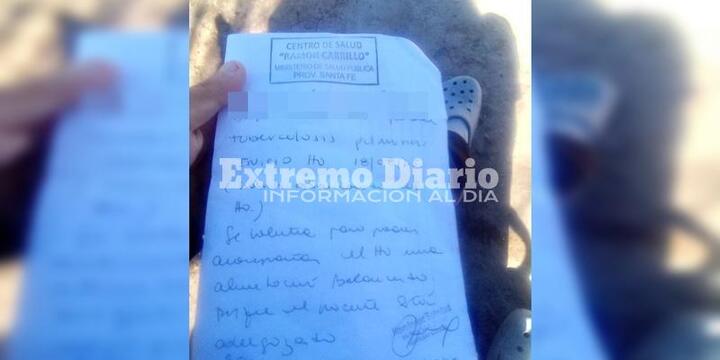 CENTRO DE SALUD
"RAMON CARRILLO"
MINISTERIO DE SALUD PUBLICA
PROV. SANTA FE
tuberculosis pulmonar
Inicio tto 18/0
Extremo Diario
INFORMACIÓN AL DÍA
tto.)
Se solicita para poder
acompañar el tto una
alimentación balanceada,
porque el paciente está
adelgazado